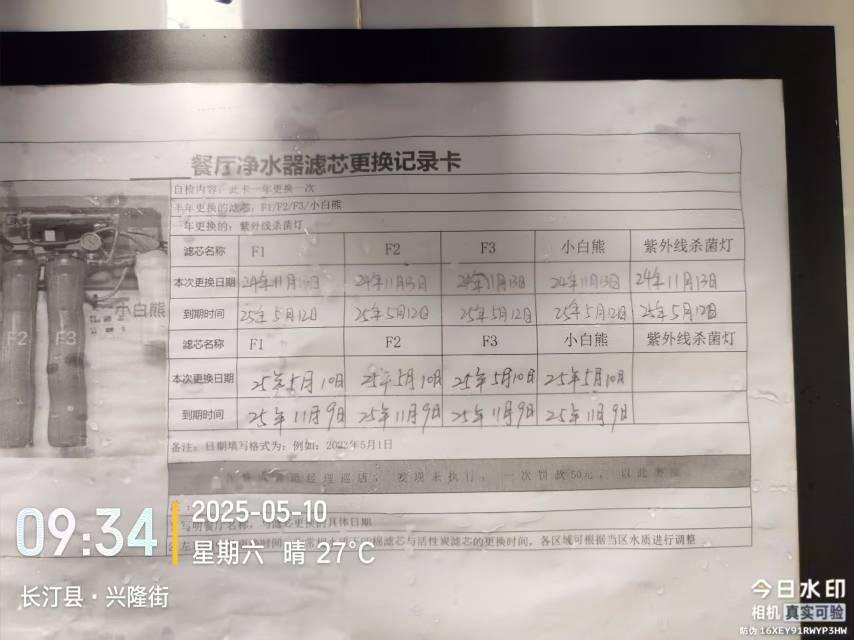 餐厅净水器滤芯更换记录卡
自检内容：此卡一年更换一次
半年更换的滤芯：F1/F2/F3/小白熊
一年更换的：紫外线杀菌灯
滤芯名称 F1 F2 F3 小白熊 紫外线杀菌灯
本次更换日期 24年11月13日 24年11月13日 24年11月13日 24年11月13日 24年11月13日
到期时间 25年5月12日 25年5月12日 25年5月12日 25年5月12日 25年5月12日
滤芯名称 F1 F2 F3 小白熊 紫外线杀菌灯
本次更换日期 25年5月10日 25年5月10日 25年5月10日 25年5月10日
到期时间 25年11月9日 25年11月9日 25年11月9日 25年11月9日
小白熊
F2 F3
备注：日期填写格式为：例如：2022年5月1日
经理巡店，发现未执行，一次罚款50元，以此类推
明餐厅名称，与滤芯更换的具体日期
棉滤芯与活性炭滤芯的更换时间，各区域可根据当区水质进行调整
09:34
2025-05-10
星期六 晴 27℃
长汀县·兴隆街
今日水印
相机 真实可验
防伪 16XEY91RWYP3HW